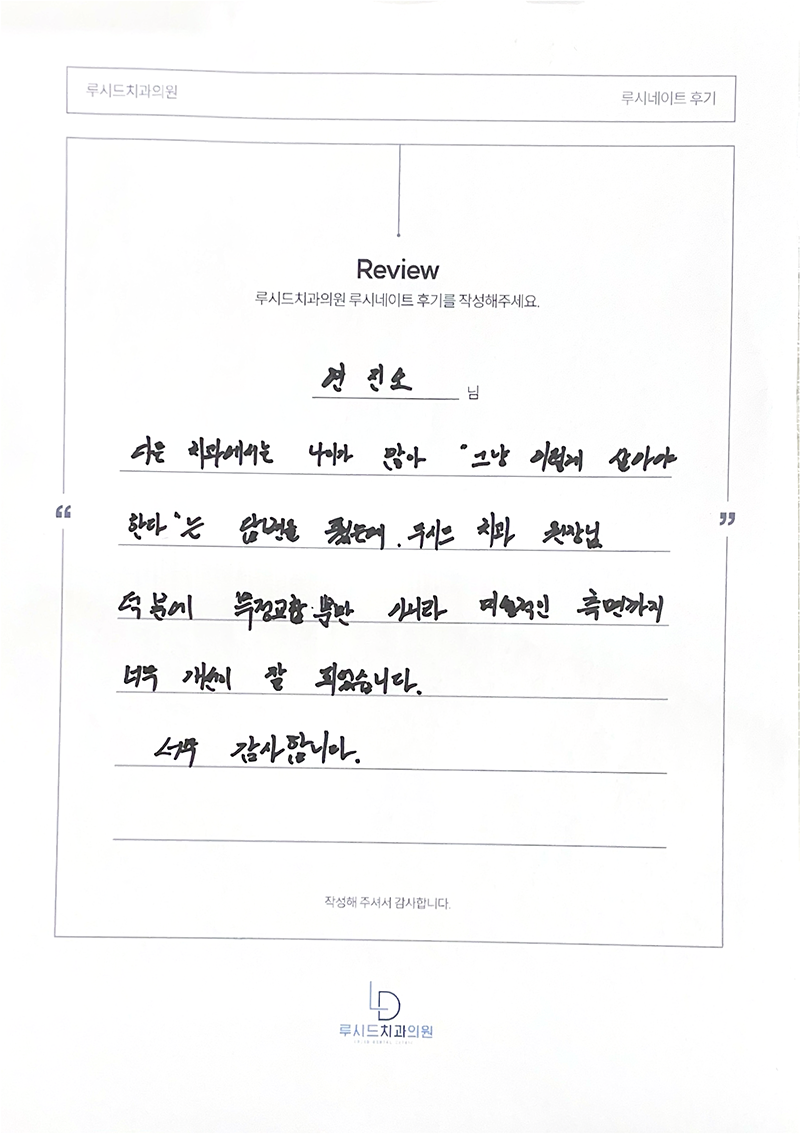 루시드치과의원
루시네이트 후기
Review
루시드치과의원 루시네이트 후기를 작성해주세요.
연 진오 님
다운 치과에서는 나이가 많아 "그냥 이렇게 살아야
한다"는 답변을 줬는데. 루시드 치과 원장님
덕분에 부정교합 뿐만 아니라 미술적인 측면까지
너무 개선이 잘 되었습니다.
너무 감사합니다.
작성해 주셔서 감사합니다.
LD
루시드치과의원